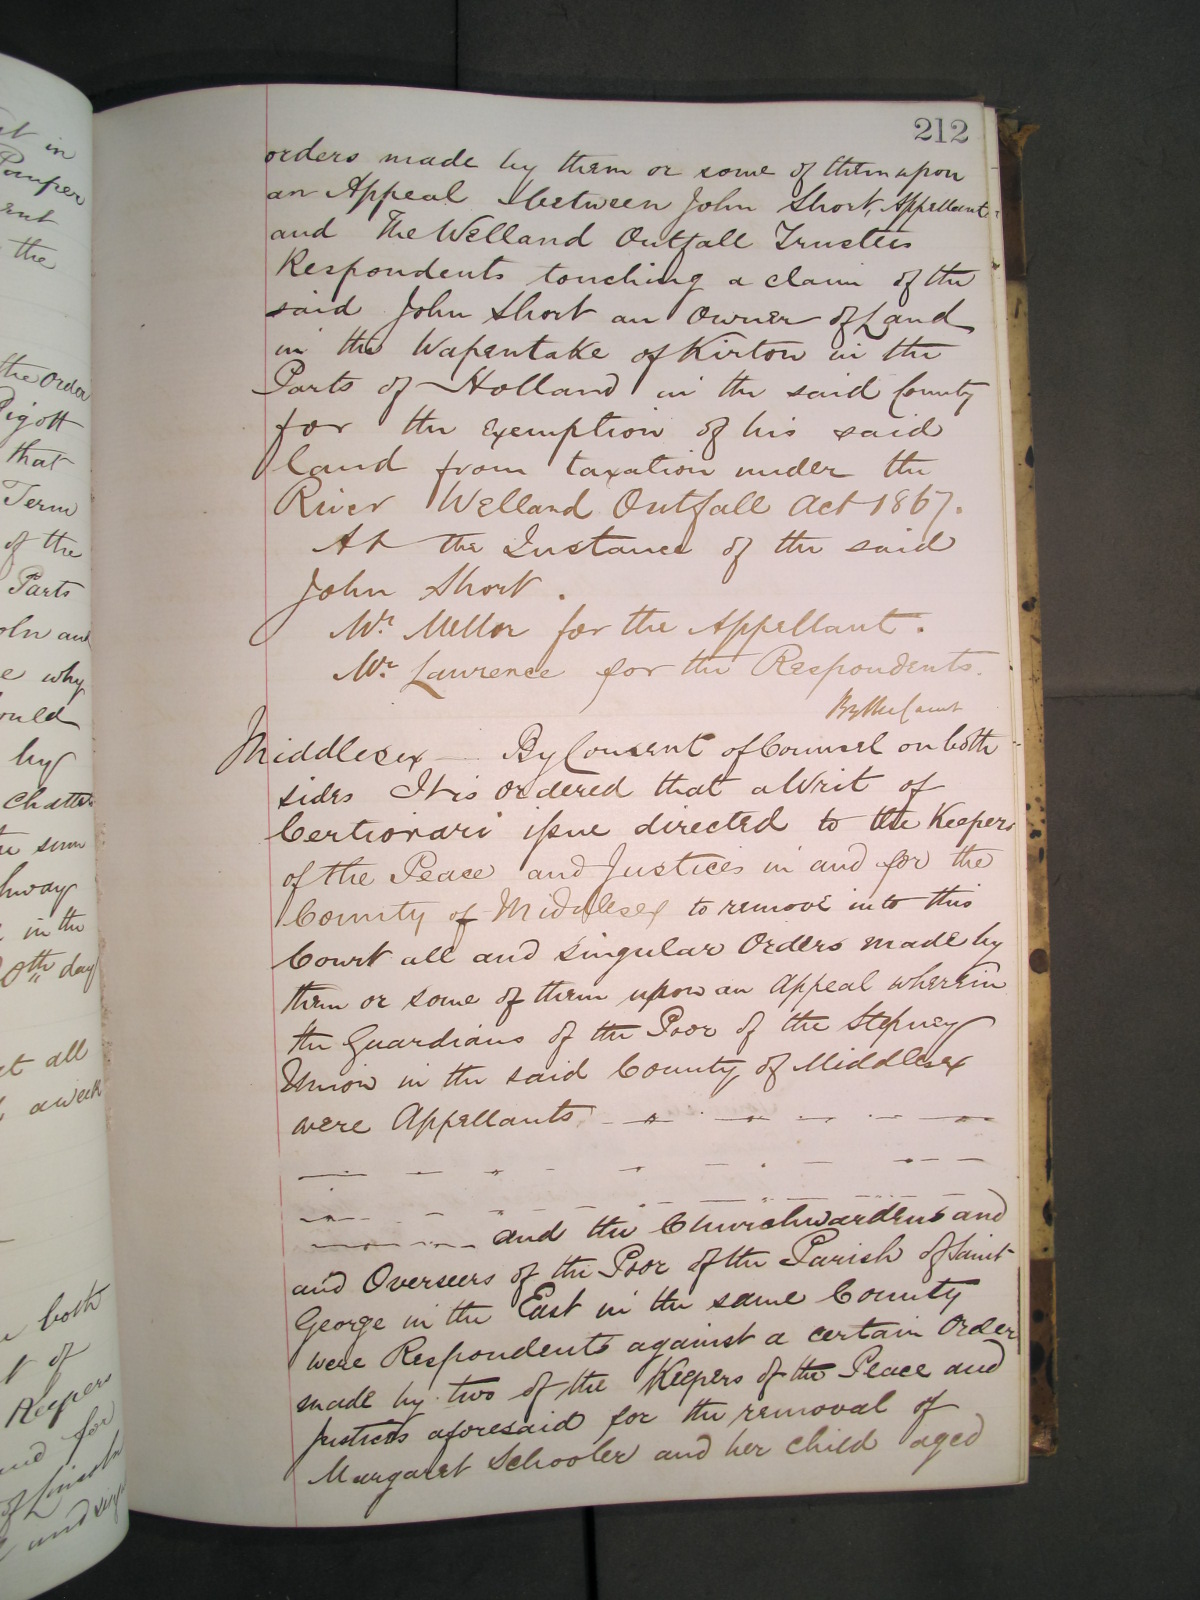 212
orders made by them or some of them upon
an Appeal between John Short, Appellant
and The Welland Outfall Trustees
Respondents touching a claim of the
said John Short an Owner of Land
in the Wapentake of Kirton in the
Parts of Holland in the said County
for the exemption of his said
land from taxation under the
River Welland Outfall Act 1867.
At the Instance of the said
John Short.
Mr. Mellor for the Appellant.
Mr. Lawrence for the Respondents.
By the Court
Middlesex — By Consent of Counsel on both
sides It is ordered that a Writ of
Certiorari issue directed to the Keepers
of the Peace and Justices in and for the
County of Middlesex to remove into this
Court all and singular Orders made by
them or some of them upon an Appeal wherein
the Guardians of the Poor of the Stepney
Union in the said County of Middlesex
were Appellants
and the Churchwardens and
and Overseers of the Poor of the Parish of Saint
George in the East in the same County
were Respondents against a certain Order
made by two of the Keepers of the Peace and
Justices aforesaid for the removal of
Margaret Schooler and her child aged
in
Pauper
the
the Order
Pigott
that
Term
of the
Parts
why
by
in the
day
all
a week
both
of
Keepers
for
of Lincoln